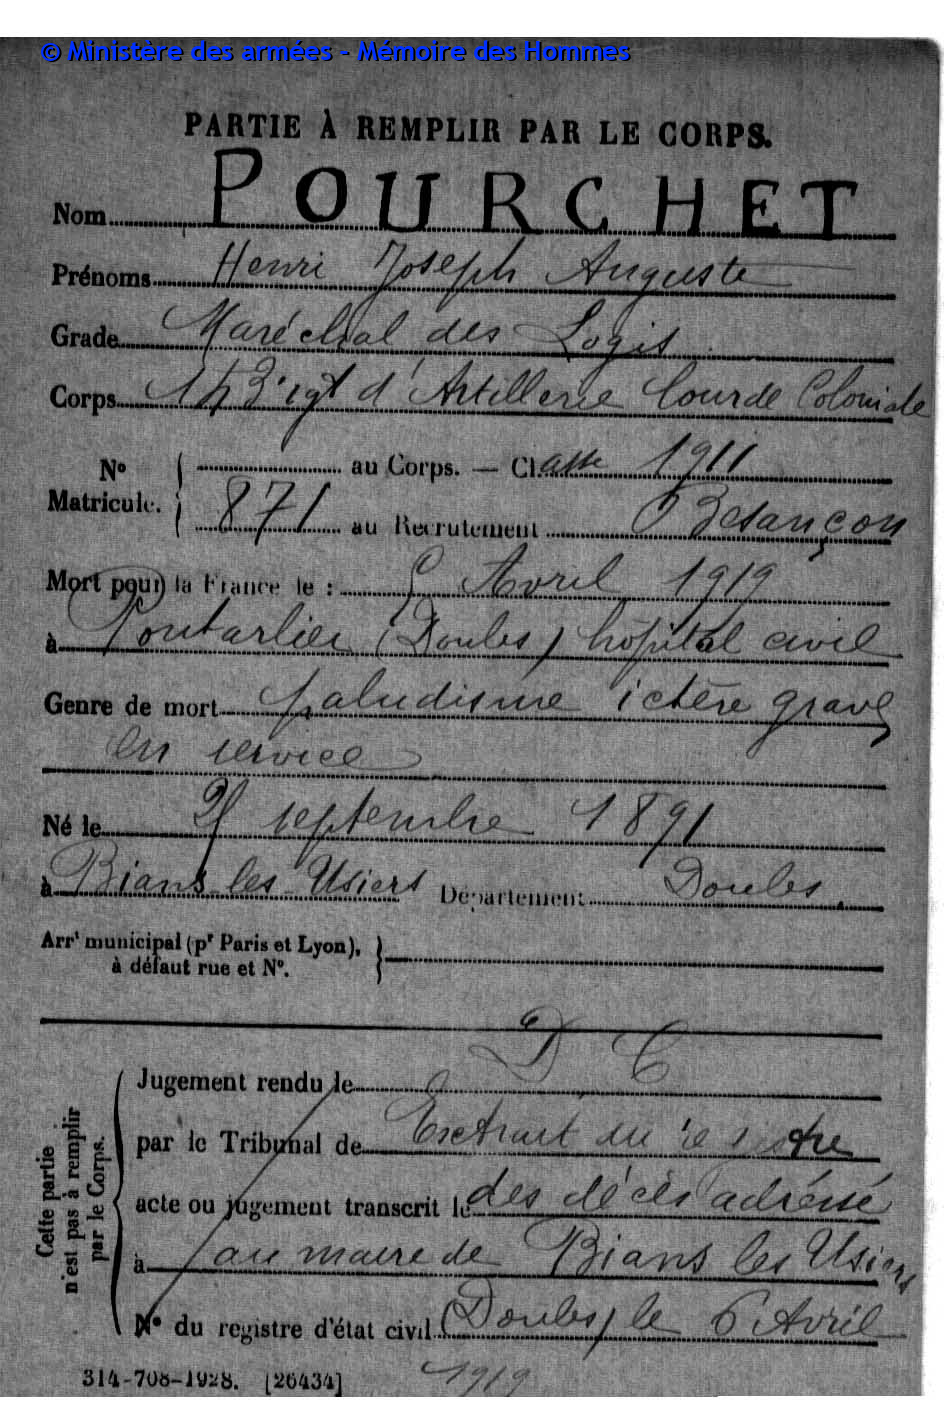 © Ministère des armées - Mémoire des Hommes
PARTIE À REMPLIR PAR LE CORPS.
Nom POURCHET
Prénoms Henri Joseph Auguste
Grade Maréchal des Logis
Corps 143 rgt d'Artillerie Lourde Coloniale
No Matricule. au Corps. — Classe 1911
871 au Recrutement Besançon
Mort pour la France le : 5 Avril 1919
à Pontarlier (Doubs) hôpital civil
Genre de mort paludisme ictère grave
en service
Né le septembre 1891
à Bians-les-Usiers Département Doubs.
Arrt municipal (pr Paris et Lyon),
à défaut rue et No.
D C
Cette partie n'est pas à remplir par le Corps.
Jugement rendu le
par le Tribunal de Extrait du registre
acte ou jugement transcrit le des décès adréssé
à au maire de Bians les Usiers
No du registre d'état civil (Doubs) le 6 Avril
314-708-1928. [26434] 1919